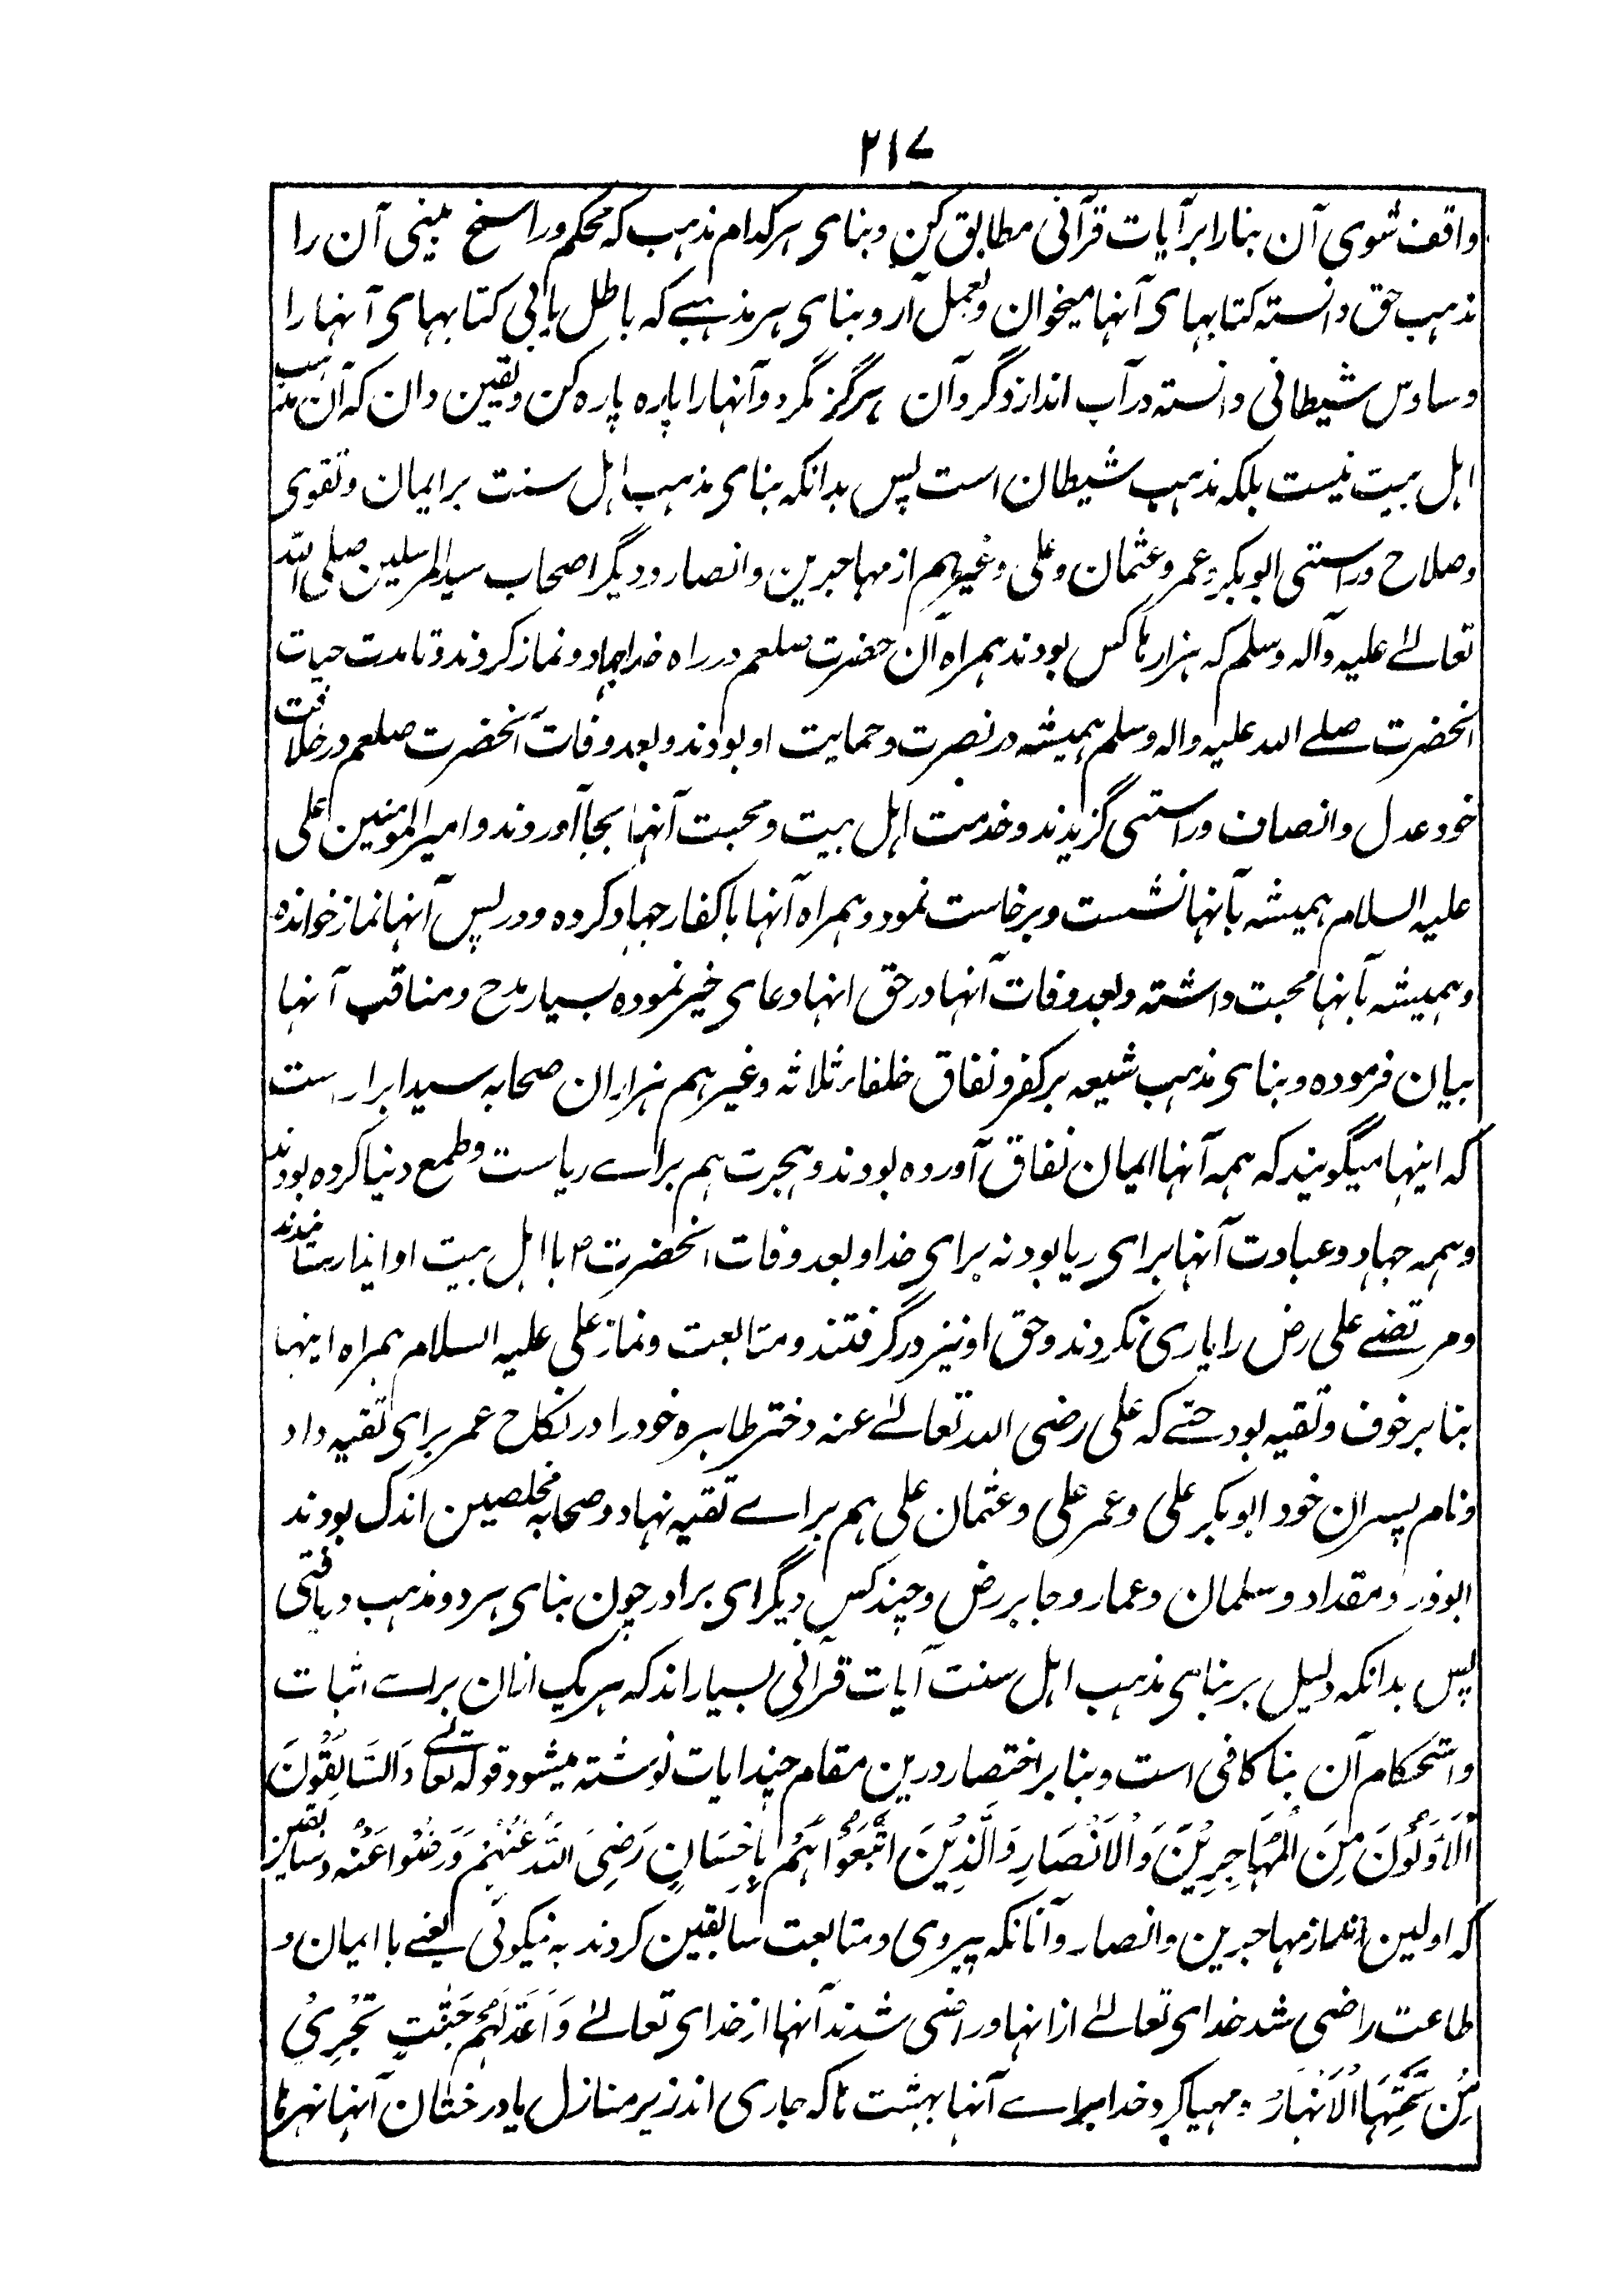 ۲۱۷
واقف شوی آن بنا را بر آیات قرآنی مطابق کن و بنای هر کدام مذهب که محکم و راسخ بینی آن را
مذهب حق دانسته کتابهای آنها میخوان و بعمل آر و بنای هر مذهبے که باطل یابی کتابهای آنها را
وساوس شیطانی دانسته در آب انداز و گرد آن هرگز مگرد و آنها را پاره پاره کن و یقین دان که آن مذهب
اهل بیت نیست بلکه مذهب شیطان است پس بدانکه بنای مذهب اهل سنت بر ایمان و تقوی
و صلاح و راستی ابوبکر و عمر و عثمان و علی و غیرهم از مهاجرین و انصار و دیگر اصحاب سید المرسلین صلی الله
تعالےٰ علیه وآله وسلم که هزارها کس بودند همراه آن حضرت صلعم در راه خدا جهاد و نماز کردند و تا مدت حیات
آنحضرت صلے الله علیه واله وسلم همیشه در نصرت و حمایت او بودند و بعد وفات آنحضرت صلعم در خلافت
خود عدل و انصاف و راستی گزیدند و خدمت اهل بیت و محبت آنها بجا آوردند و امیر المومنین علی
علیه السلام همیشه بآنها نشست و برخاست نمود و همراه آنها با کفار جهاد کرده و در پس آنها نماز خوانده
و همیشه بآنها محبت داشته و بعد وفات آنها در حق انها دعای خیر نموده بسیار مدح و مناقب آنها
بیان فرموده و بنای مذهب شیعه بر کفر و نفاق خلفاء ثلاثه و غیرهم هزاران صحابه سید ابرار ست
که اینها میگویند که همه آنها ایمان نفاق آورده بودند و هجرت هم براے ریاست و طمع دنیا کرده بودند
و همه جهاد و عبادت آنها برای ریا بود نه برای خدا و بعد وفات آنحضرت ص با اهل بیت او ایذا رسانیدند
و مرتضے علی رض را یاری نکردند و حق او نیز در گرفتند و متابعت و نماز علی علیه السلام همراه اینها
بنا بر خوف و تقیه بود حتے که علی رضی الله تعالےٰ عنه دختر طاهره خود را در نکاح عمر برای تقیه داد
و نام پسران خود ابوبکر علی و عمر علی و عثمان علی هم براے تقیه نهاد و صحابه مخلصین اندک بودند
ابوذر و مقداد و سلمان و عمار و جابر رض و چند کس دیگر ای برادر چون بنای هر دو مذهب دریافتی
پس بدانکه دلیل بر بنای مذهب اهل سنت آیات قرآنی بسیار اند که هر یک ازان براے اثبات
و استحکام آن بنا کافی است و بنا بر اختصار درین مقام چند ایات نوشته میشود قوله تعالے وَالسَّابِقُونَ
الْاَوَّلُونَ مِنَ الْمُهَاجِرِیْنَ وَالْاَنْصَارِ وَالَّذِیْنَ اتَّبَعُوْا هُمْ بِاِحْسَانٍ رَضِیَ اللّٰهُ عَنْهُمْ وَرَضُوْا عَنْهُ و سابقین
که اولین اند از مهاجرین و انصار و آنانکه پیروی و متابعت سابقین کردند به نیکوئی یعنے با ایمان و
طاعت راضی شد خدای تعالےٰ از انها و راضی شدند آنها از خدای تعالےٰ وَاَعَدَّ لَهُمْ جَنّٰتٍ تَجْرِیْ
مِنْ تَحْتِهَا الْاَنْهَارُ و مهیا کرد خدا براے آنها بهشت ها که جاری اند زیر منازل یا درختان آنها نهرها